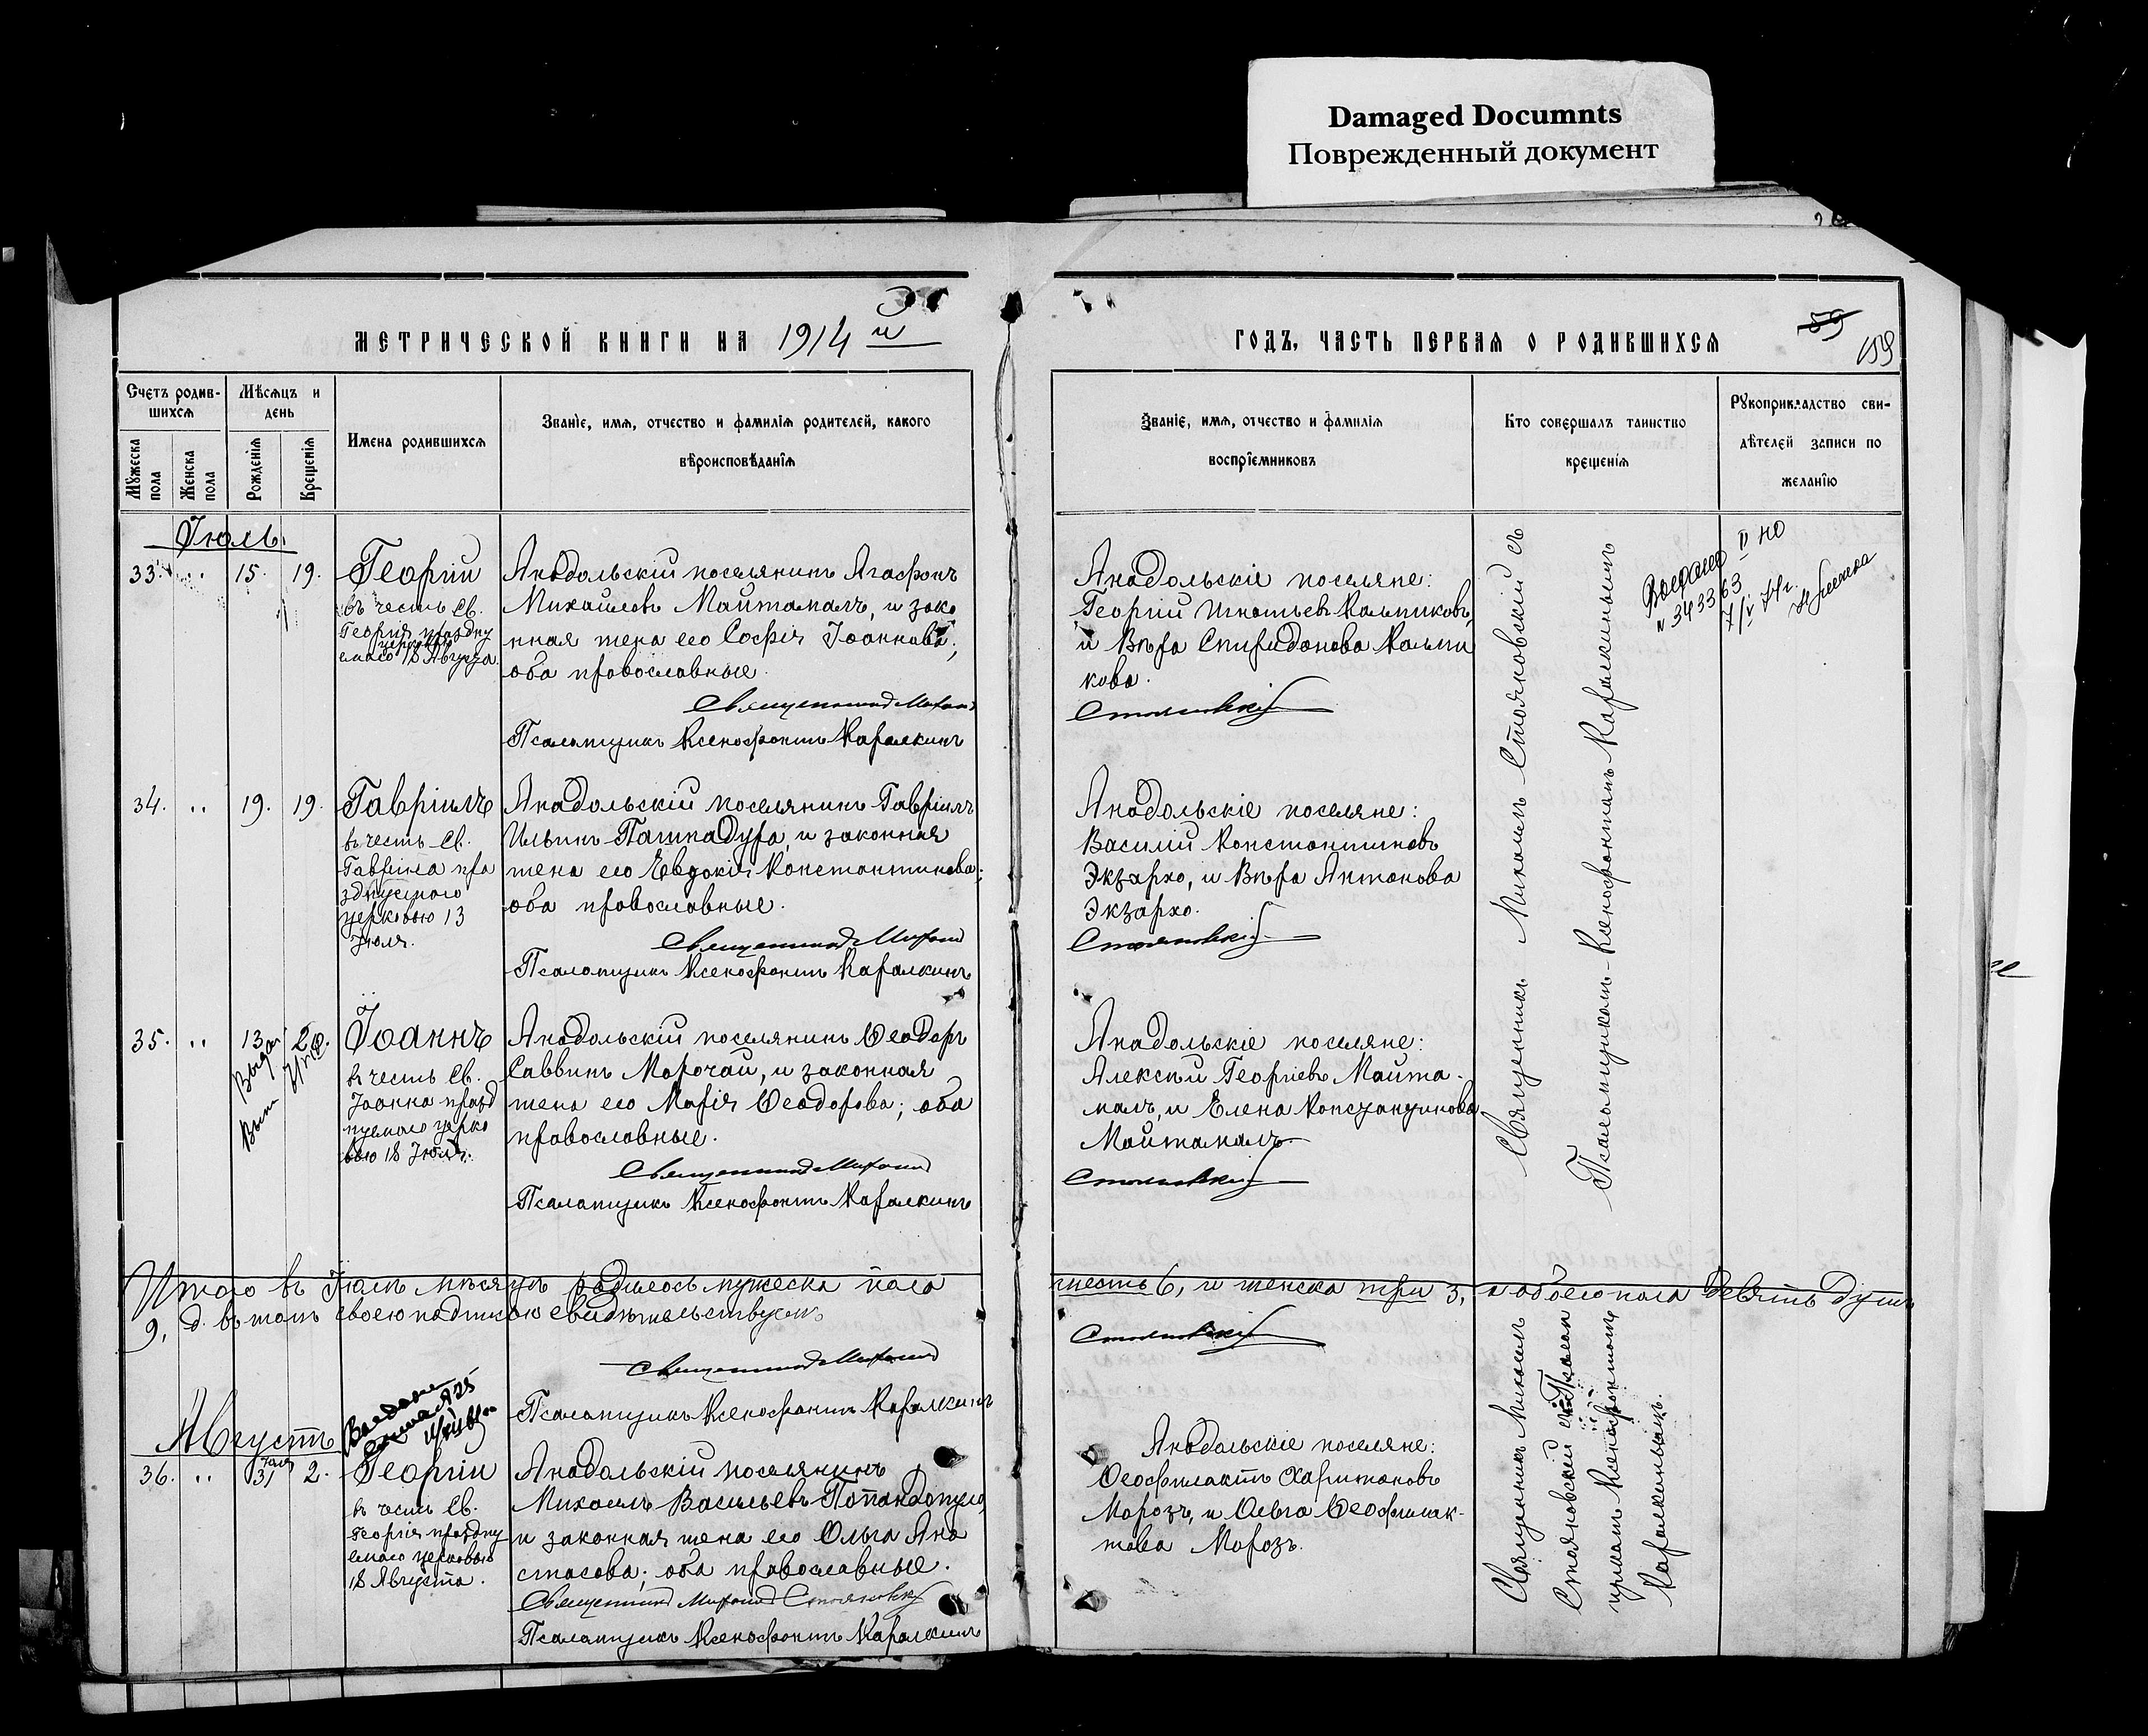 Damaged Documnts
Поврежденный документ
МЕТРИЧЕСКОЙ КНИГИ НА 1914 й
ГОДЪ, ЧАСТЬ ПЕРВАЯ О РОДИВШИХСЯ
59
159
Счетъ родив-
шихся
Мѣсяцъ и
день
Мужеска пола
Женска пола
Рожденія
Крещенія
Имена родившихся
Званіе, имя, отчество и фамилія родителей, какого
вѣроисповѣданія
Званіе, имя, отчество и фамилія
воспріемниковъ
Кто совершалъ таинство
крещенія
Рукоприкладство сви-
дѣтелей записи по
желанію
Іюль.
33. " 15. 19.
Георгій
въ честь Св.
Георгія праздну
емаго церковію 18 Августа.
Анадольскій поселянинъ Агафонъ
Михайловъ Майтамалъ, и зако
нная жена его Софія Іоаннова;
оба православные.
Священник
Псаломщикъ Ксенофонтъ Каралкинъ
Анадольскіе поселяне:
Георгій Игнатьевъ Кальчиковъ,
и Вѣра Спиридонова Кальчи
кова.
Стояновскій
34. " 19. 19.
Гавріилъ
въ честь Св.
Гавріила пра
зднуемаго
церковью 13
Іюля.
Анадольскій поселянинъ Гавріилъ
Ильинъ Пашпадура, и законная
жена его Евдокія Константинова;
оба православные.
Священник
Псаломщикъ Ксенофонтъ Каралкинъ
Анадольскіе поселяне:
Василій Константиновъ
Экзархо, и Вѣра Антонова
Экзархо.
Стояновскій
35. " 13 20.
Іоаннъ
въ честь Св.
Іоанна празд
нуемаго церко
вью 18 Іюля.
Анадольскій поселянинъ Ѳеодоръ
Саввинъ Марочай, и законная
жена его Марія Ѳеодорова; оба
православные.
Священник
Псаломщикъ Ксенофонтъ Каралкинъ
Анадольскіе поселяне:
Алексѣй Георгіевъ Майта-
малъ, и Елена Константинова
Майтамалъ.
Стояновскій
Священникъ Михаилъ Стояновскій съ
Псаломщикомъ Ксенофонтомъ Каралкинымъ
Выдано
343363
Итого въ Іюлѣ мѣсяцѣ родилось мужеска пола
шесть 6, и женска три 3, а обоего пола девять душъ
9, въ томъ своею подписью свидѣтельствуемъ
Священник
Стояновскій
Псаломщикъ Ксенофонтъ Каралкинъ
Августъ
36. " Іюля 31 2.
Георгій
въ честь Св.
Георгія праздну
емаго церковью
18 Августа.
Анадольскій поселянинъ
Михаилъ Васильевъ Попандопуло,
и законная жена его Ольга Ана
стасова; оба православные.
Священник Стояновскій
Псаломщикъ Ксенофонтъ Каралкинъ
Анадольскіе поселяне:
Ѳеофилактъ Харитоновъ
Морозъ, и Ольга Ѳеофилак-
това Морозъ.
Священникъ Михаилъ
Стояновскій съ Псалом
щикомъ Ксенофонтомъ
Каралкинымъ.